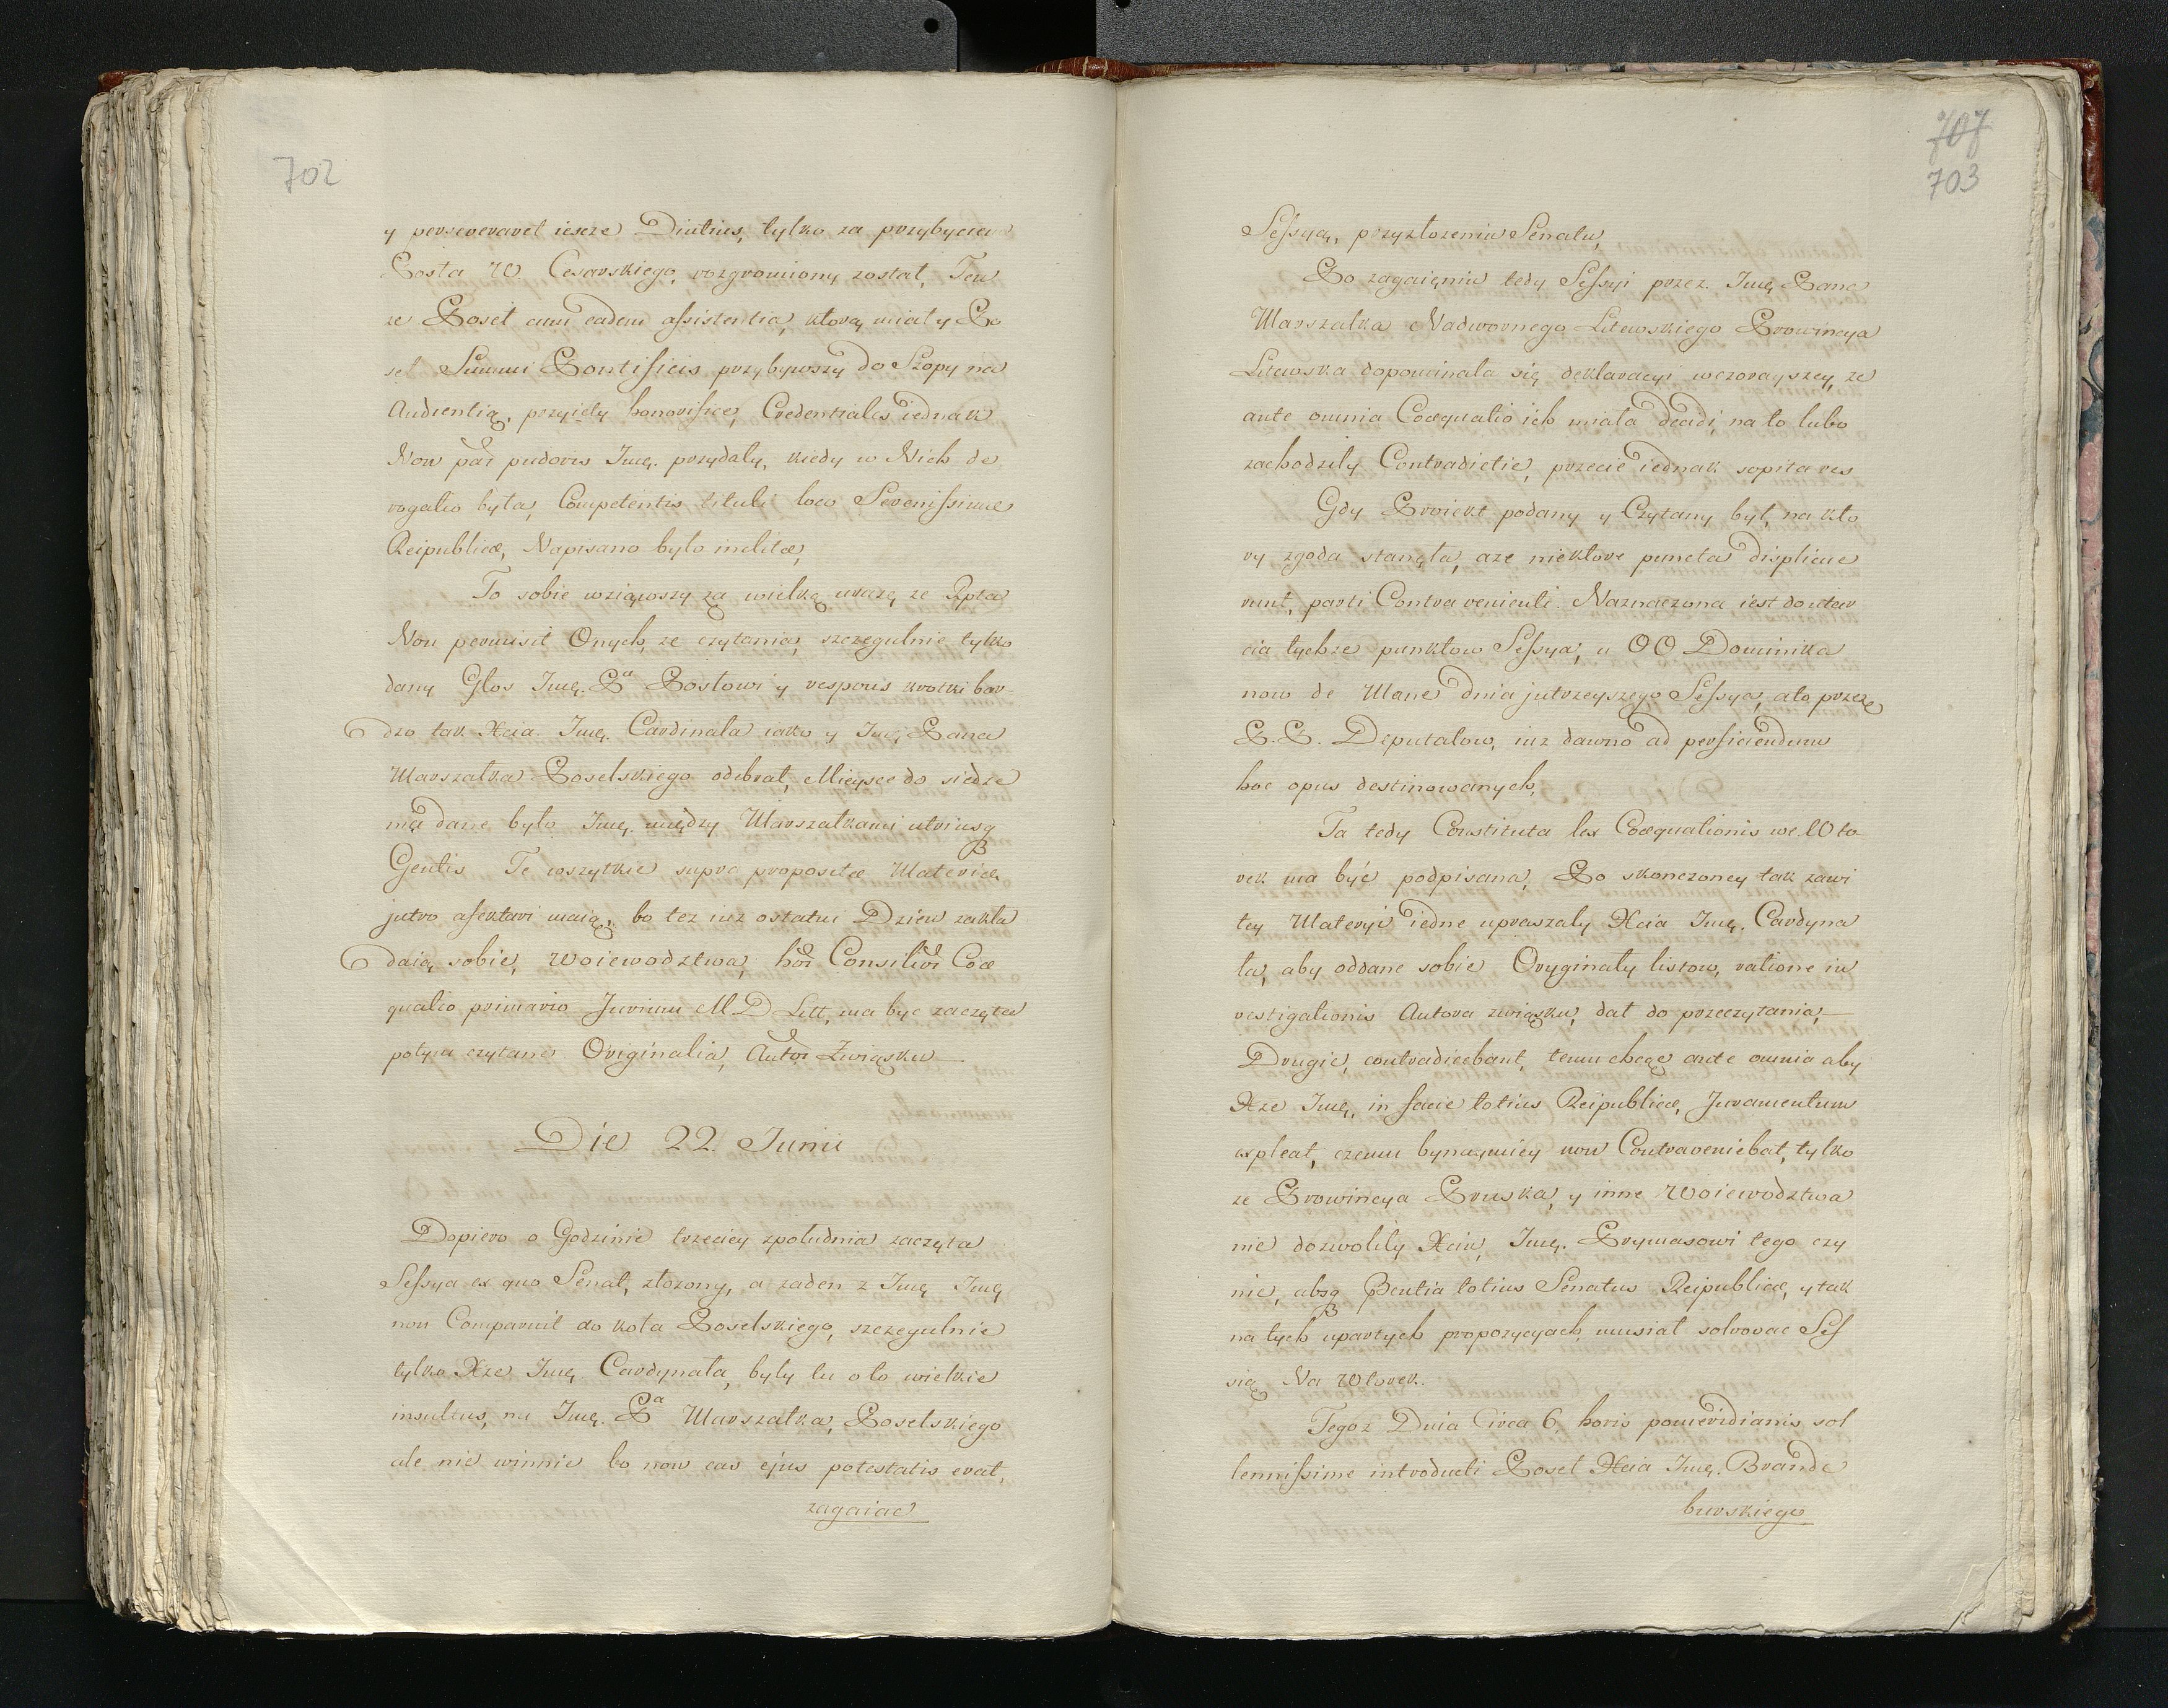 702
y perseveravet ieszcze Diutius, tylko za przybyciem
Posła W Cesarskiego, rozgromiony został, Ten
ze Poseł cum eadem assistentia, ktorą miał y Po
seł Summi Pontificis przybywszy do Szopy na
Audientią, przyięty honorifice, Credentiales iednak
Non par pudoris Jmę. przydały, kiedy w Nich de
rogatio była, Competentis tituli loco Serenissimæ
Reipublicæ, Napisano było inclitæ,
To sobie wziąwszy za wielką urazę, ze Rpta
Non permisit Onych, ze czytania, szczegulnie tylko
dany Głos Jmę. Pa Posłowi y respons krotki bar-
dzo tak Xcia Jmę. Cardinała iako y Jmę Pana
Marszałka Poselskiego odebrał, Mieysce do siedze
nia dane było Jmę. między Marszałkami utriusq
Gentis Te wszytkie supra propositæ Materiæ
jutro afektari maią, bo tez iuz ostatni Dzien zakła
daią, sobie, Woiewodztwa, hor Consilior Coæ
quatio primario Jurium M D Litt, ma byc zaczęta
potym czytane Originalia, Autor Związku
Die 22. Junii
Dopiero o Godzinie trzeciey zpołudnia zaczęta
Sessya ex quo Senat, złozony, a zaden z Jmę Jmę
non Comparuit do koła Poselskiego, szczegulnie
tylko Xze Jmę Cardynała, były tu oto wielkie
insultus, na Jmę. Pa Marszałka, Poselskiego
ale nie winnie bo non eas ejus potestatis erat,
zagaiac
707
703
Sessyą, przyzłozeniu Senatu,
Po zagaięniu tedy Sessyi przez Jmę Pana
Marszałka Nadwornego Litewskiego Prowincya
Litewska dopominała się deklaracyi wczorayszey, ze
ante omnia Coæquatio ich miała decidi, na to lubo
zachodziły Contradictie, przecie iednak sopita res
Gdy Proiekt podany y Czytany był, na kto
ry zgoda stanęła, aze niektore puncta displicue
runt, parti Contra venienti. Naznaczona iest do utar
cia tychze punktow Sessya, u OO Dominika
now de Mane dnia jutrzeyszego Sessya, ato przez
P. P. Deputatow, iuz dawno ad perficiendum
hoc opus destinowanych,
Ta tedy Constituta lex Coæquationis we Wto
rek ma być podpisana, Po skonczoney tak zawi
tey Materyi iedne upraszały Xcia Jmę. Cardyna
ła, aby oddane sobie Oryginały listow, ratione in
vestigationis Autora związku, dał do przeczytania,
Drugie, contradicebant, temu chcąc ante omnia aby
Xze Jmę, in facie totius Reipublicæ, Juramentum
expleat, czemu bynaymiey non Contraveniebat, tylko
ze Prowincya Pruska, y inne Woiewodztwa
nie dozwoliły Xciu, Jmę. Prymasowi tego czy
nic, absq totius Senatus Reipublicæ, y tak
na tych upartych propozycyach musiał solvowac Ses
się Na Wtorek.
Tegoz Dnia Circa 6, horis pomeridianis sol
lennissime introducti Poseł Xcia Jmę. Brande
burskiego